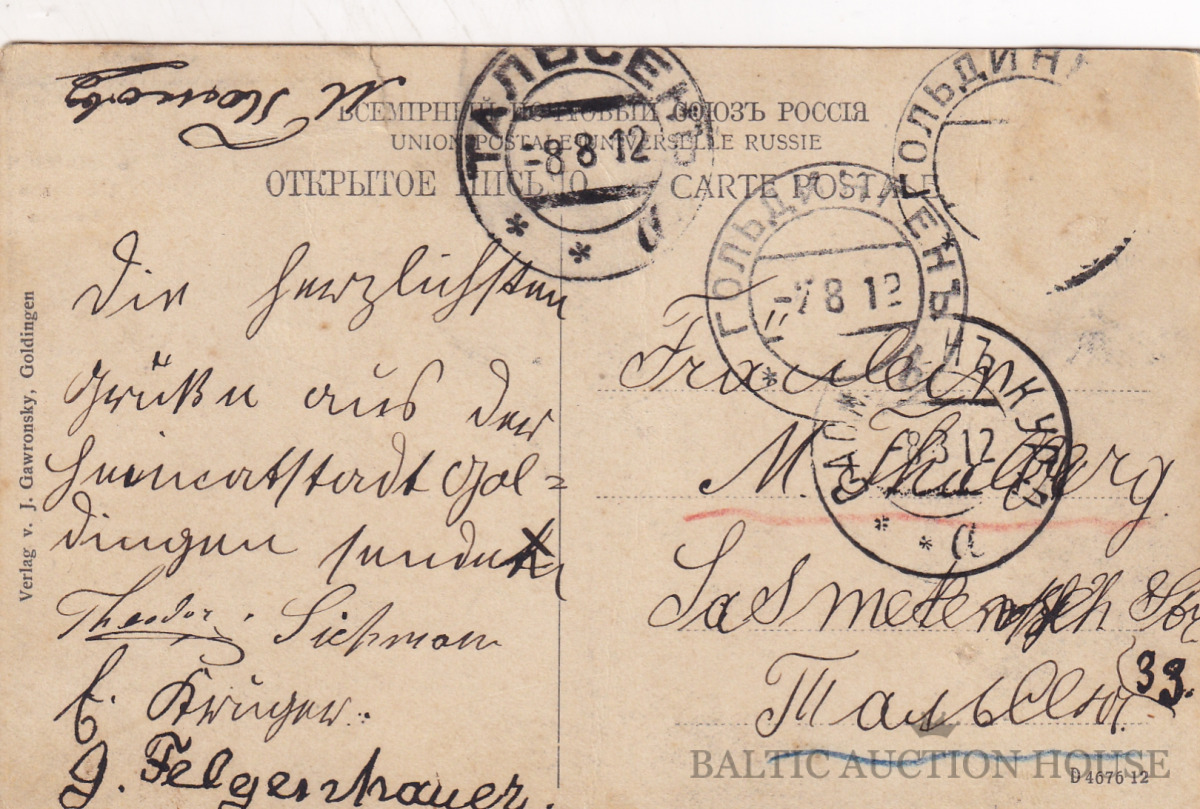 ВСЕМІРНЫЙ ПОЧТОВЫЙ СОЮЗЪ РОССІЯ
UNION POSTALE UNIVERSELLE RUSSIE
ОТКРЫТОЕ ПИСЬМО
CARTE POSTALE
ТАЛЬСЕНЪ
-8 8 12
а
ГОЛЬДИНГЕНЪ
-7 8 12
ГОЛЬДИНГ
-8 8 12
а
Die herzlichsten
Grüße aus der
Heimatstadt Gol=
dingen senden
Theodor
E. Krüger.
G. Felgenhauer.
Fräulein
M. Thalberg.
33.
Verlag v. J. Gawronsky, Goldingen
BALTIC AUCTION HOUSE
D 4676 12